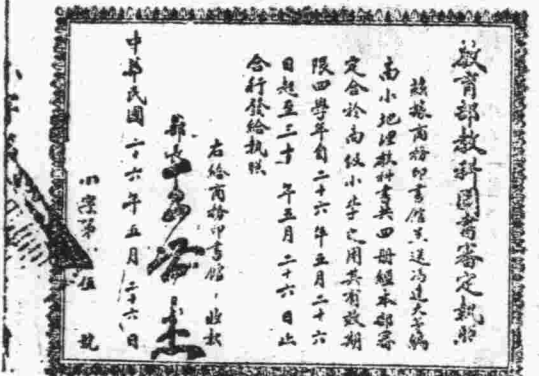 教育部教科圖書審定執照
茲據商務印書館呈送馮達夫等編
高小地理教科書共四册經本部審
定合於高級小學之用其有效期
限四學年自二十六年五月二十六
日起至三十 年五月二十六日止
合行發給執照
右給商務印書館，收執
部長王世杰
中華民國二十六年五月二十六日
小字第 伍 號